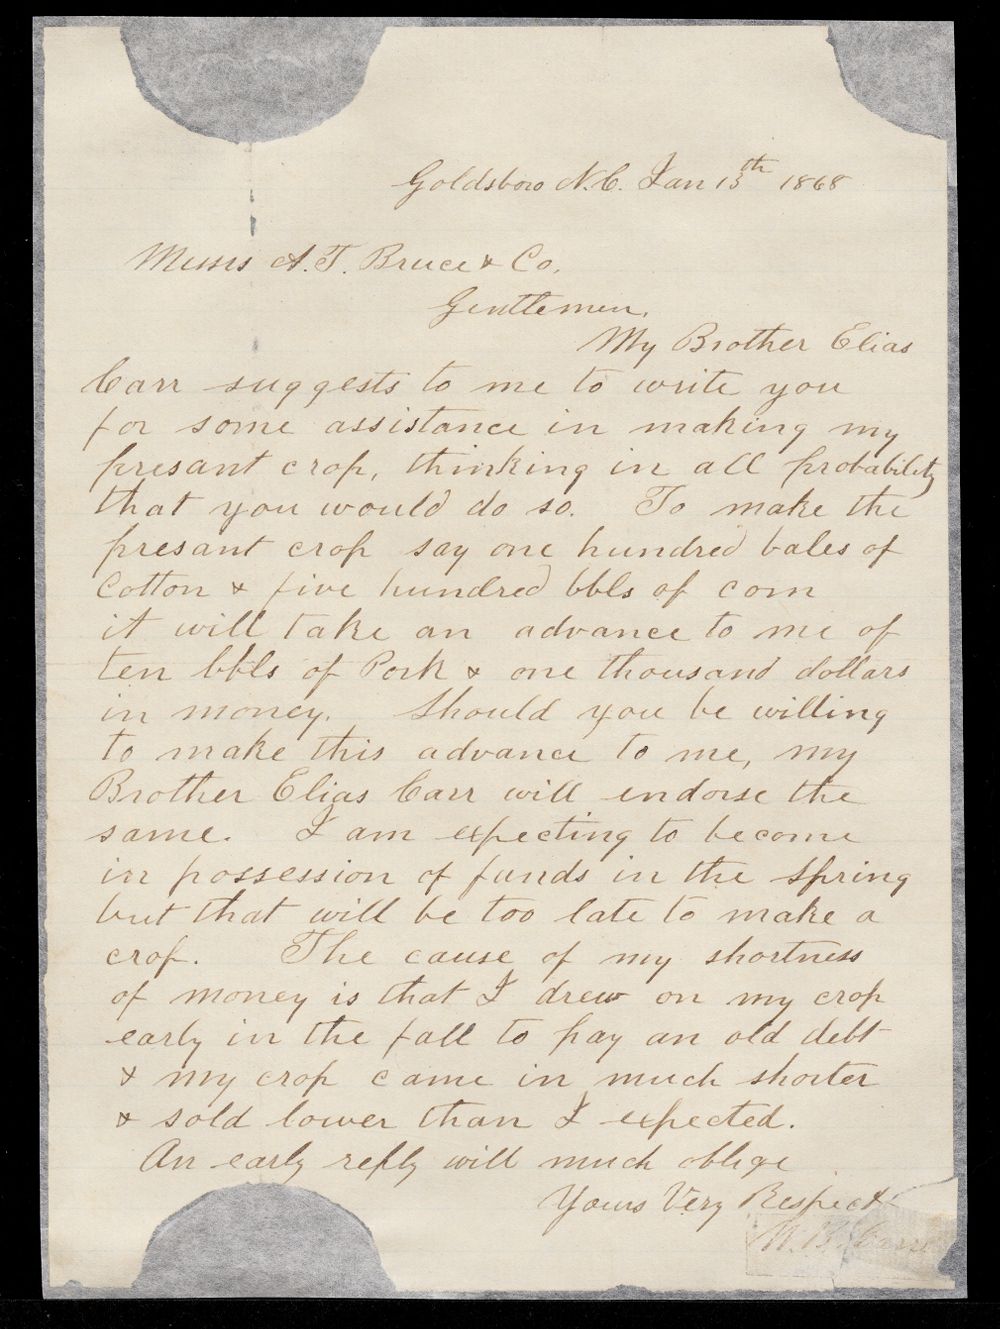 Goldsboro N.C. Jan 13th 1868
Messrs A. T. Bruce & Co.
Gentlemen,
My Brother Elias
Carr suggests to me to write you
for some assistance in making my
presant crop, thinking in all probability
that you would do so. To make the
presant crop say one hundred bales of
Cotton & five hundred bbls of corn
it will take an advance to me of
ten bbls of Pork & one thousand dollars
in money. Should you be willing
to make this advance to me, my
Brother Elias Carr will endorse the
same. I am expecting to become
in possession of funds in the Spring
but that will be too late to make a
crop. The cause of my shortness
of money is that I drew on my crop
early in the fall to pay an old debt
& my crop came in much shorter
& sold lower than I expected.
An early reply will much oblige
Yours Very Respect
W. B. Carr